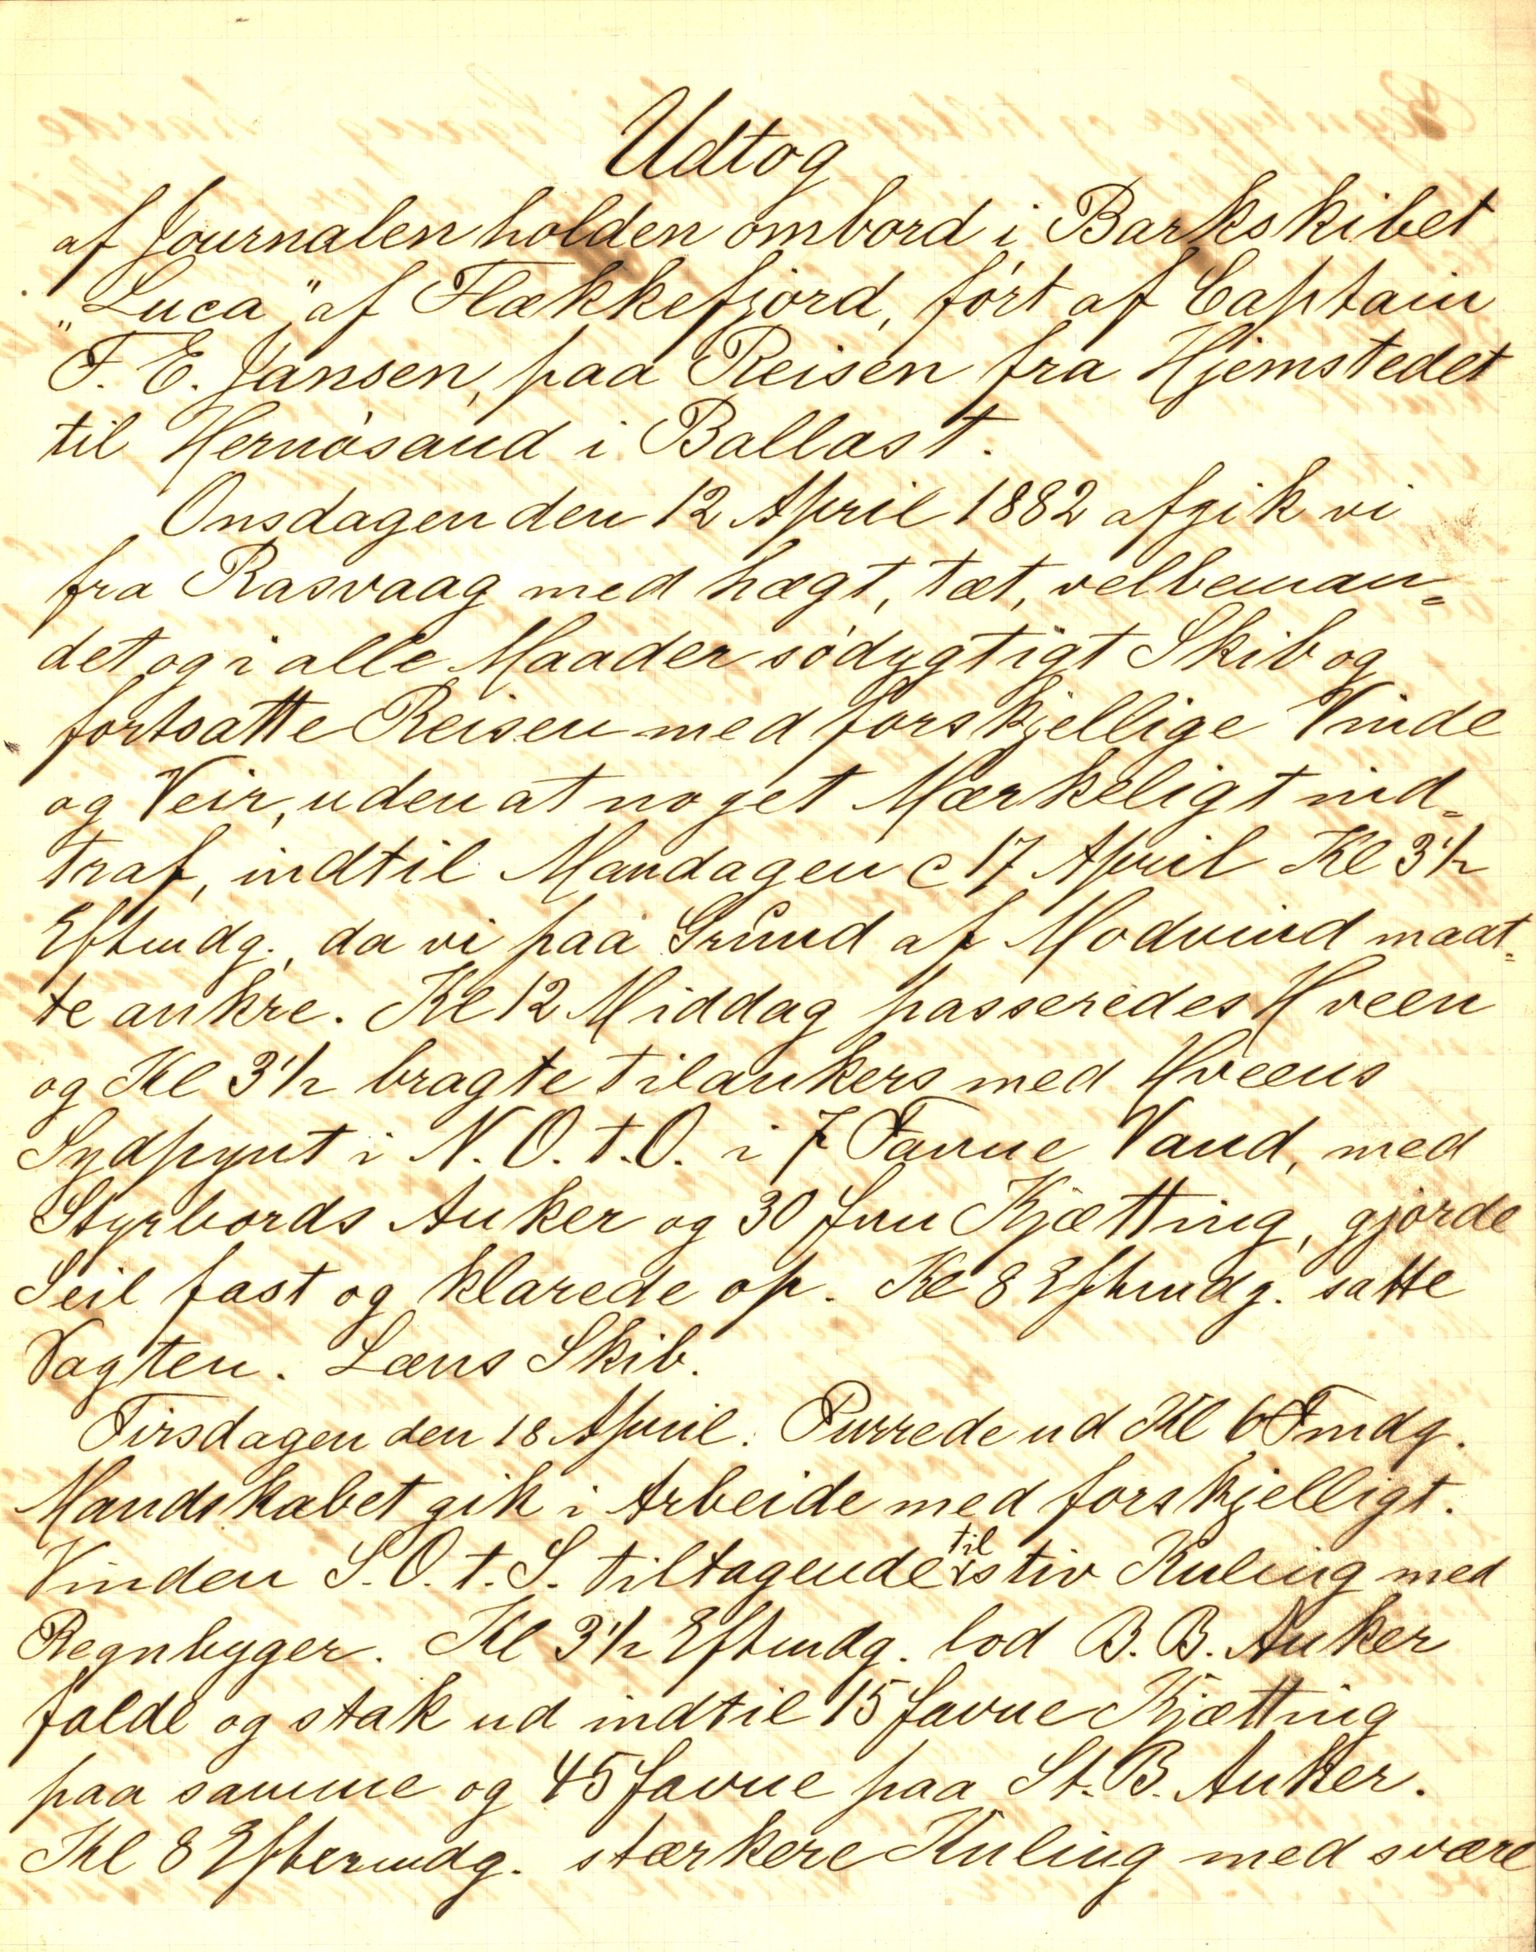 Udtog
af Journalen holden ombord i Barkskibet
„Luca” af Flækkefjord, ført af Captain
F. E. Jansen, paa Reisen fra Hjemstedet
til Hernøsand i Ballast.
Onsdagen den 12 April 1882 afgik vi
fra Rasvaag med hægt, tæt, velbeman=
det og i alle Maader sødygtigt Skib og
fortsatte Reisen med forskjellige Vinde
og Veir, uden at noget Mærkeligt ind=
traf, indtil Mandagen d 17 April Kl 3½
Eftmdg., da vi paa Grund af Modvind maat=
te ankre. Kl 12 Middag passeredes Hveen
og Kl 3½ bragte tilankers med Hveens
Sydpynt i N. O. t. O. i 7 Favne Vand, med
Styrbords Anker og 30 fvn Kjætting, gjorde
Seil fast og klarede op. Kl 8 Eftmdg. satte
Vagten. Læns Skib.
Tirsdagen den 18 April. Purrede ud Kl 6 Fmdg.
Mandskabet gik i Arbeide med forskjelligt.
Vinden S. O. t. S. tiltagende til stiv Kuling med
Regnbyger. Kl 3½ Eftmdg. lod B. B. Anker
falde og stak ud indtil 15 favne Kjætting
paa samme og 45 favne paa St. B. Anker.
Kl 8 Eftermdg. stærkere Kuling med svære